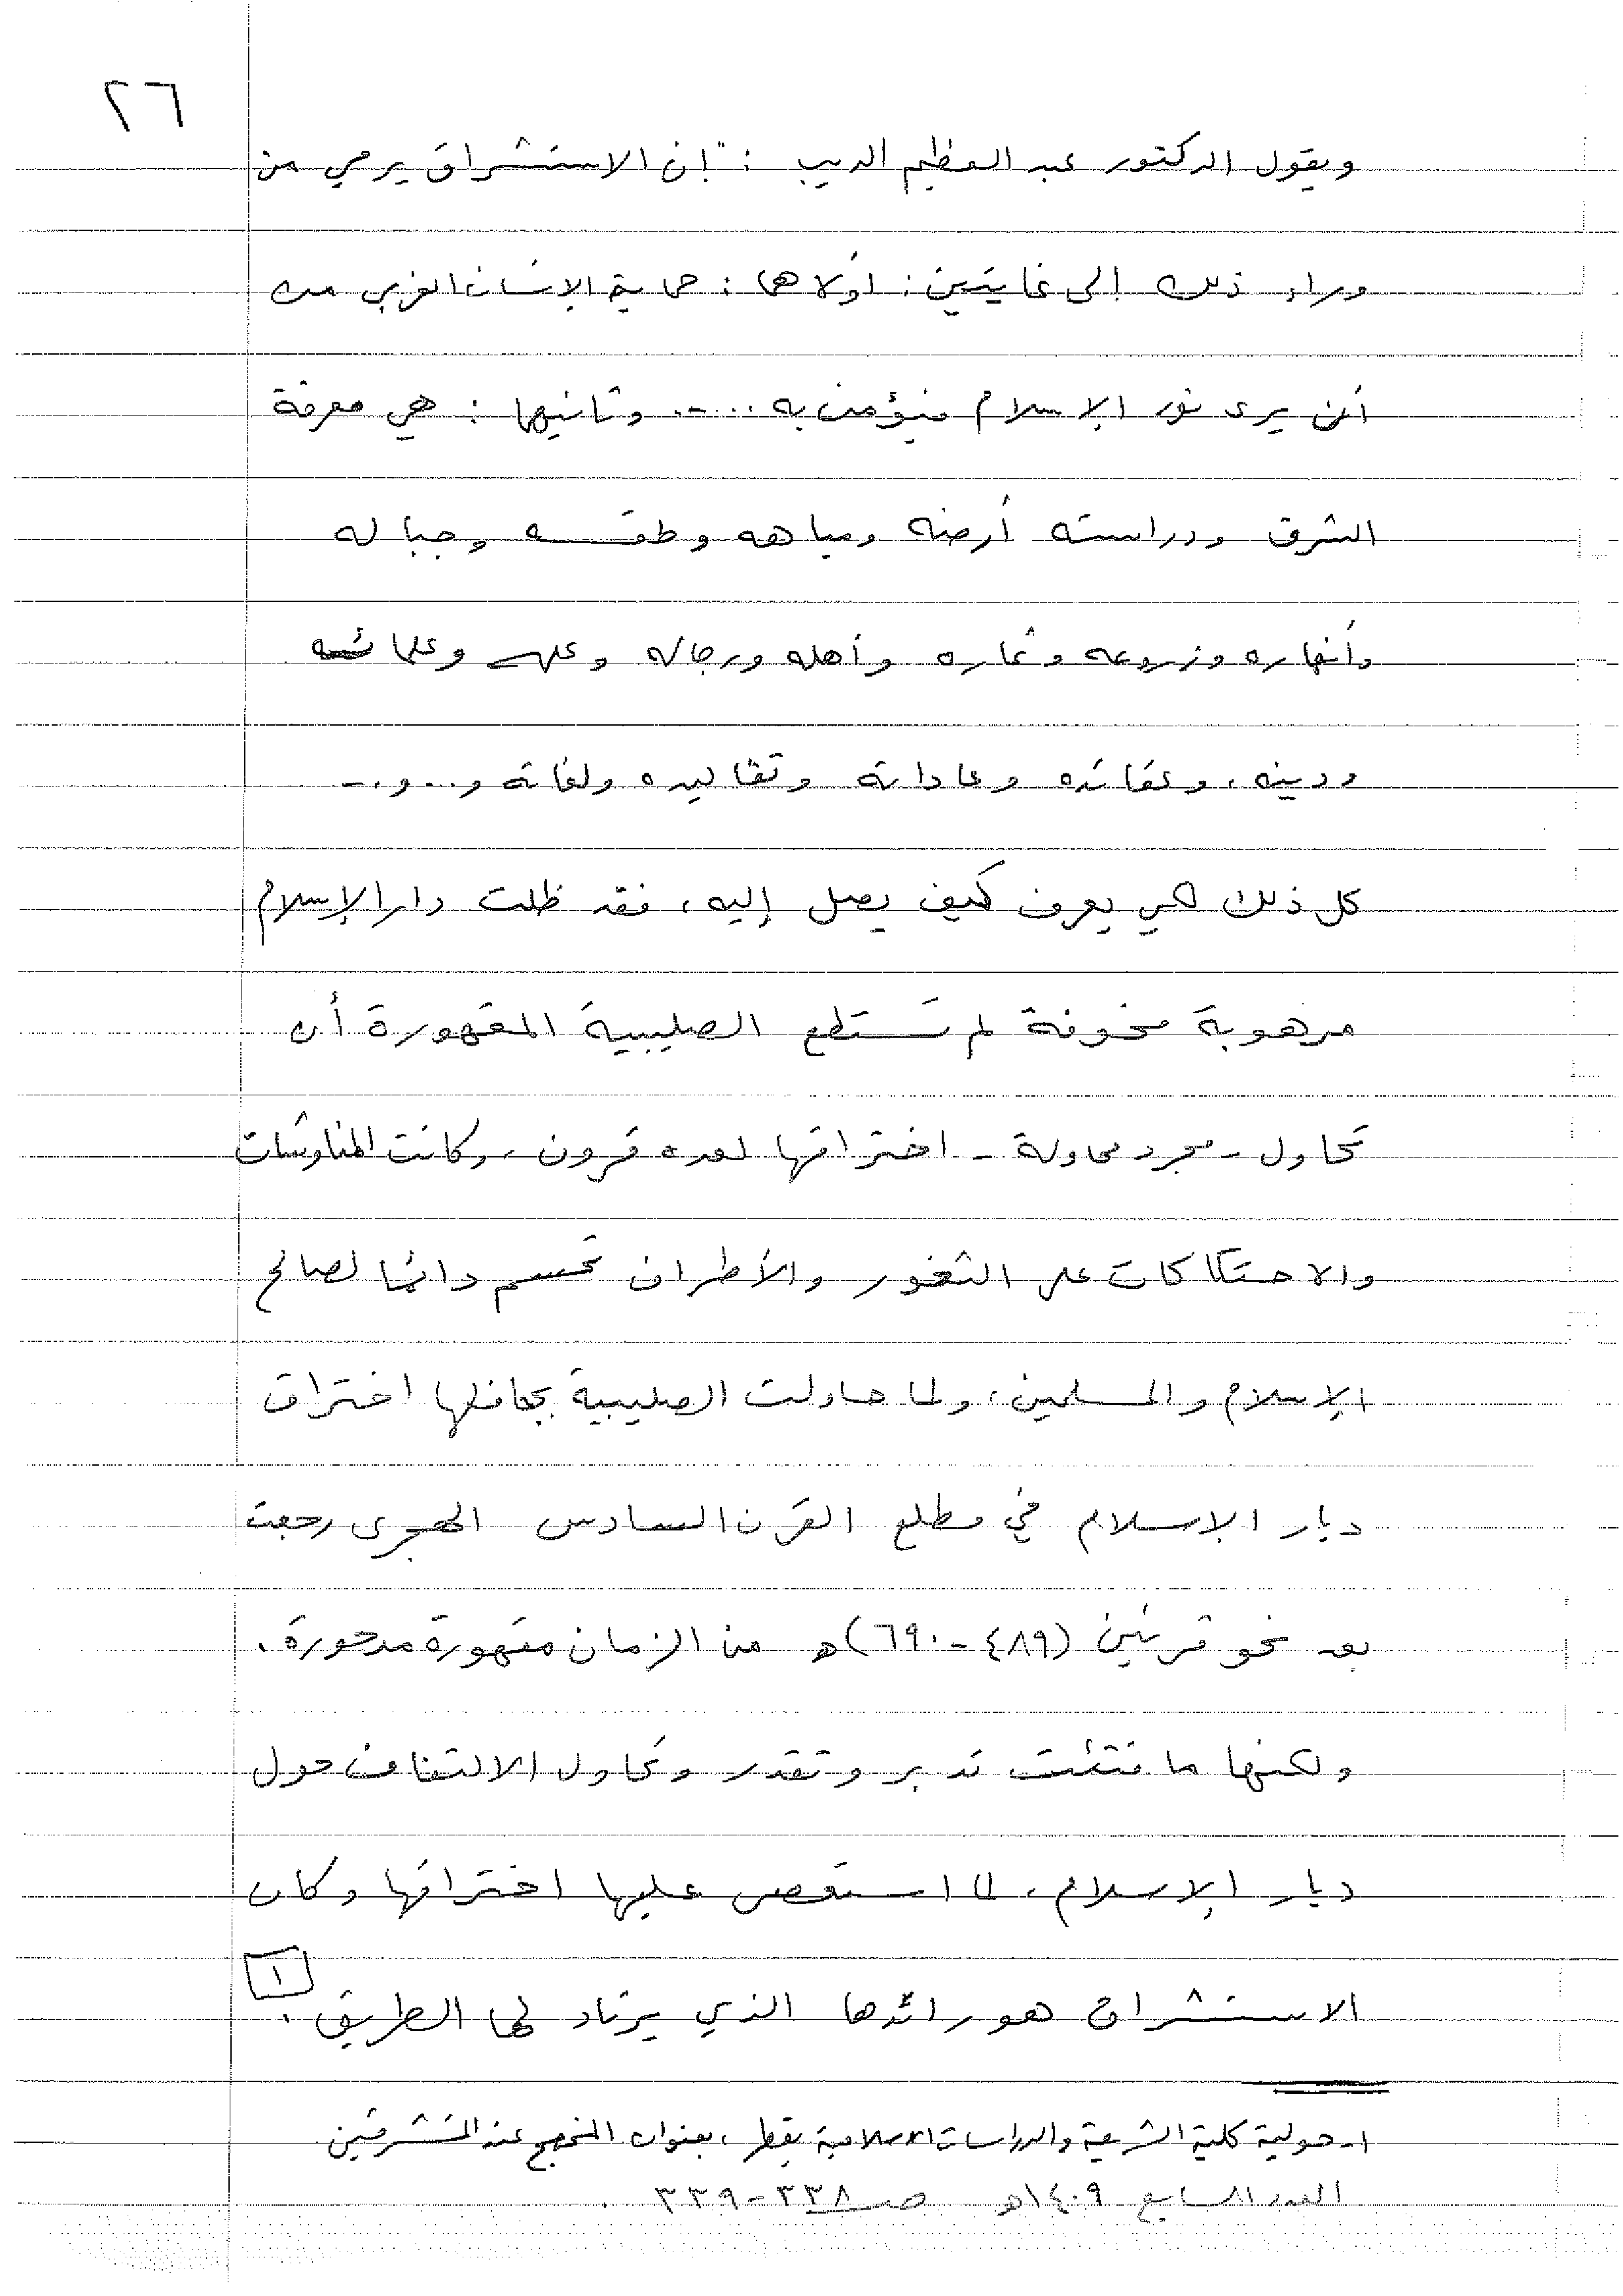 ٢٦
ويقول الدكتور عبد العظيم الديب : "إن الاستشراق يرمي من
وراء ذلك إلى غايتين : أولاها : حماية الإنسان الغربي من
أن يرى نور الإسلام فيؤمن به ..... وثانيها : هي معرفة
الشرق ودراسته أرضه ومياهه وطقسه وجباله
وأنهاره وزروعه وثماره وأهله ورجاله وعلمه وعلمائه
ودينه ، وعقائده وعاداته وتقاليده ولغاته و... و..
كل ذلك لكي يعرف كيف يصل إليه ، فقد ظلت دار الإسلام
مرهوبة مخوفة لم تستطع الصليبية المقهورة أن
تحاول - مجرد محاولة - اختراقها لعدة قرون ، وكانت المناوشات
والاحتكاكات على الثغور والأطراف تحسم دائما لصالح
الإسلام والمسلمين ، ولما حاولت الصليبية بجحافلها اختراق
ديار الإسلام في مطلع القرن السادس الهجري رجعت
بعد نحو قرنين (٤٨٩ - ٦٩٠) ه من الزمان مقهورة مدحورة .
ولكنها ما فتئت تدبر وتقدر وتحاول الالتفاف حول
ديار الإسلام ، لما استعصى عليها اختراقها وكان
الاستشراق هو رائدها الذي يرتاد لها الطريق . [١]
١- حولية كلية الشريعة والدراسات الاسلامية بقطر ، بعنوان المنهج عند المستشرقين
العدد السابع ١٤٠٩ه صـ ٣٣٨ - ٣٣٩ .